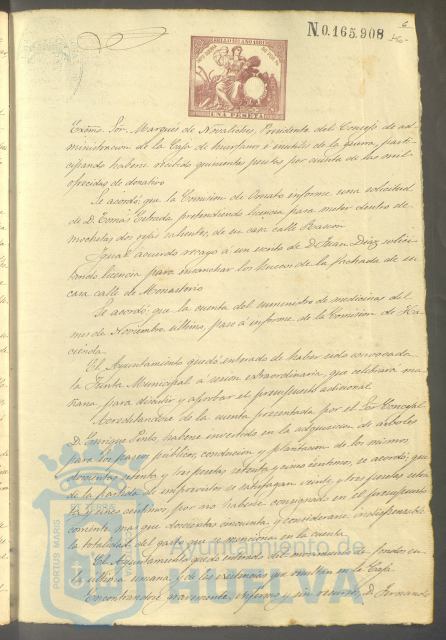 N.0.165.908
6
SELLO 11º AÑO 1881
UNA PESETA
Exºmo. Sor. Marqués de Novaliches, Presidente del Consejo de ad-
ministracion de la Caja de huerfanos é inutiles de la guerra, parti-
cipando haberse recibido quinientas pesetas por cuenta de las mil
ofrecidas de donativo
Se acordó: que la Comision de Ornato informe una solicitud
de D. Tomás Estrada, pretendiendo licencia para meter dentro de
mochetas, dos rejas salientes, de su casa calle Rascon
Igual acuerdo recayó á un escrito de D. Juan Diaz solici-
tando licencia para ensanchar los huecos de la fachada de su
casa calle de Monasterio
Se acordó: que la cuenta del suministro de medicinas del
mes de Noviembre último, pase á informe de la Comision de Ha-
cienda.
El Ayuntamiento quedó enterado de haber sido convocada
la Junta Municipal á sesion extraordinaria, que celebrará ma-
ñana para discutir y aprobar el presupuesto adicional
Acreditandose de la cuenta presentada por el Sor Concejal
D. Enrique haberse invertido en la adquisicion de árboles
para los paseos públicos, conduccion y plantacion de los mismos
doscientas setenta y tres pesetas setenta y cinco centimos, se acordó; que
de la partida de imprevistos se satisfagan veinte y tres pesetas seten-
ta y cinco centimos, por no haberse consignado en el presupuesto
corriente mas que doscientas cincuenta, y considerarse indispensable
la totalidad del gasto que se menciona en la cuenta
El Ayuntamiento quedó enterado del movimiento de fondos en
la última semana, y de las existencias que resultan en la Caja
Encontrandose gravemente enfermo y sin recursos, D. Fernando
PORTUS MARIS
Ayuntamiento de
HUELVA